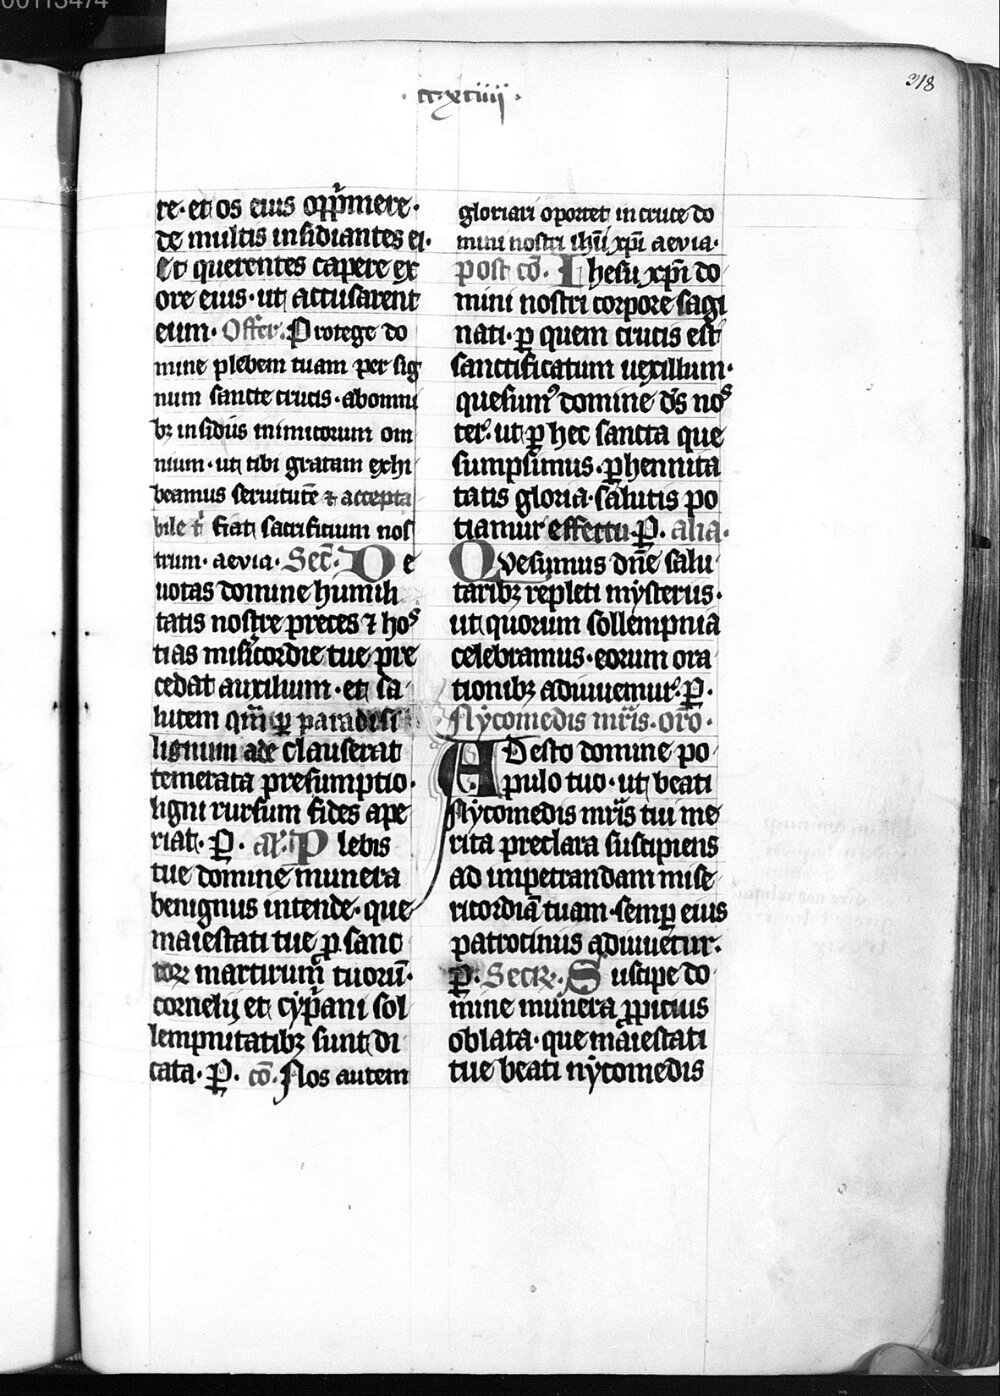 00113474
318
·cc·xciiij·
re· et os eius opp̃mere·
de multis insidiantes ei·
Et querentes capere ex
ore eius· ut accusarent
eum· Offer̃· Protege do
mine plebem tuam per sig
num sancte crucis· ab omni
bꝫ insidiis inimicorum om
nium· ut tibi gratam exhi
beamus seruitutē ⁊ accepta
bile t̃ fiat sacrificium nos
trum· aevia· Sec̃· De
uotas domine humili
tatis nostre preces ⁊ hoˢ
tias mis̃icordie tue pre
cedat auxilium· et sa
lutem qm̃ ꝑ paradisi
lignum ade clauserat
temerata presumptio·
ligni rursum fides ape
riat· P̱· al̃· Plebis
tue domine munera
benignus intende· que
maiestati tue ꝓ sanc
toꝝ martirum tuorū·
cornelij et cyp̃ani sol
lempnitatibꝫ sunt di
cata· P̱· cō· Nos autem
gloriari oportet in cruce do
mini nostri ihū xp̄i aevia·
post cō· Ihesu xp̄i do
mini nostri corpore sagi
nati· ꝑ quem crucis est
sanctificatum uexillum·
quesumꝰ domine dˢs noˢ
ter· ut ꝑ hec sancta que
sumpsimus· ꝑhennita
tatis gloria· salutis po
tiamur effectu· P̱· alia·
Quesumus dn̄e salu
taribꝫ repleti mysteriis·
ut quorum sollempnia
celebramus· eorum ora
tionibꝫ adiuuemur· P̱·
Nycomedis mr̃is· oro·
Adesto domine po
pulo tuo· ut beati
Nycomedis mr̃is tui me
rita preclara suscipiens
ad impetrandam mise
ricordiā tuam· semꝑ eius
patrociniis adiuuetur·
P̱· Secr̃· Suscipe do
mine munera ꝓpicius
oblata· que maiestati
tue beati nycomedis